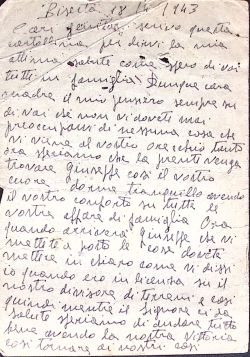 Biserta 18 1943
Cari genitori scrivo questa
cartolina per dirvi la mia
ottima salute come spero di voi
tutti in famiglia Dunque cara
madre il mio pensiero sempre su
di voi che non vi dovete mai
preoccuparvi di nessuna cosa che
vi viene al vostro orecchio tanto
ora speriamo che la presti venga
trovare Giuseppe così il vostro
cuore dorme tranquillo avendo
il vostro conforto su tutte le
vostre affare di famiglia Ora
quando arriverà Giuseppe che vi
mettete a posto le cose dovete
mettere in chiaro come vi dissi
io quando ero in licenza su il
nostro divisore di terreni e così
quindi mentre il Signore ci da
salute speriamo di andare tutto
bene avendo la nostra vittoria
così tornare di nostri cari